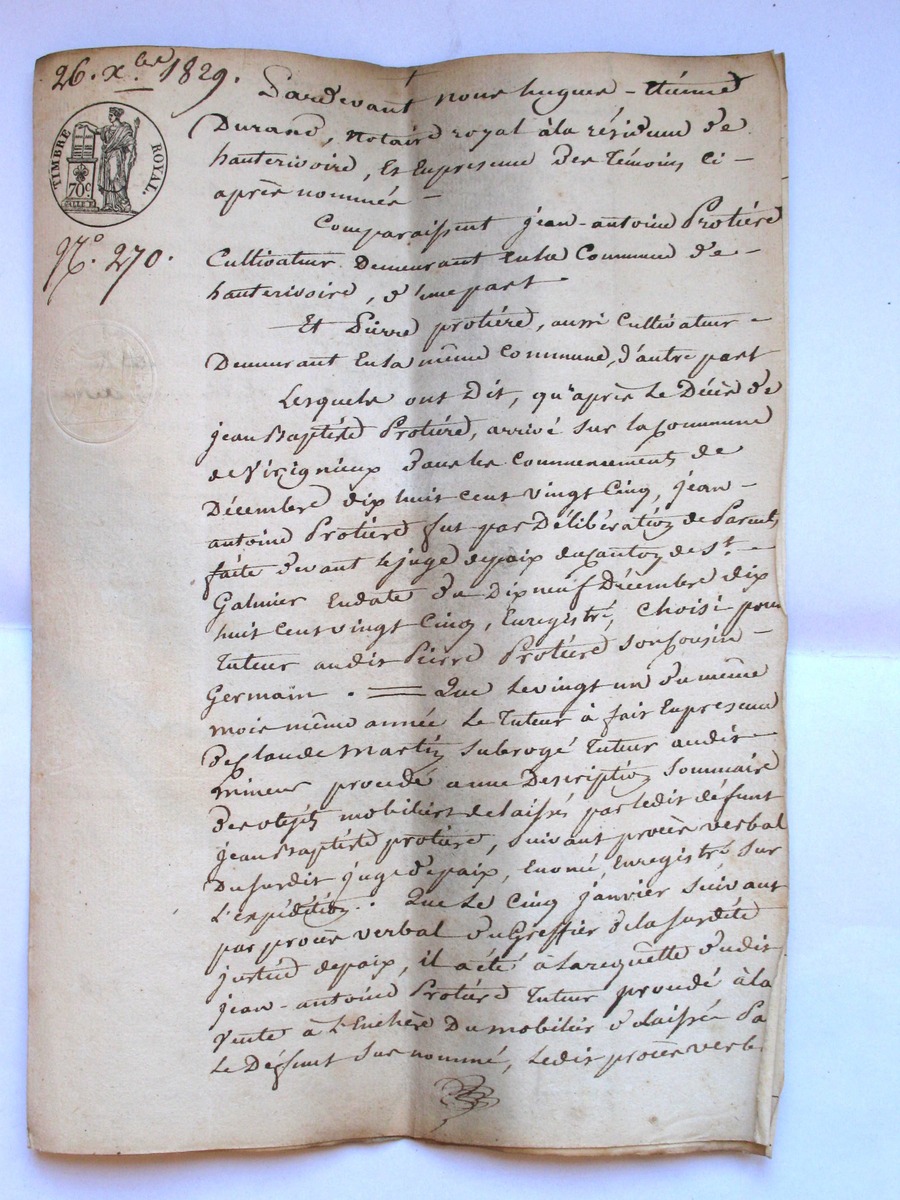 26. xbre 1829.
TIMBRE ROYAL.
70c.
N.º 270.
Pardevant nous hugues-Etienne
Durand, notaire royal à la résidence de
hauterivoire, et En presence des Témoins ci-
après nommés-
Comparaissent jean-antoine Protière
Cultivateur Demeurant En la Commune de-
hauterivoire, d'une part-
Et Pierre protière, aussi Cultivateur-
Demeurant En la même Commune, d'autre part
Lesquels ont Dit, qu'après Le Décès de
jean Baptiste Protière, arrivé sur la Commune
de Virigneux dans les Commencements de
Décembre dix huit cent vingt Cinq, jean-
antoine Protière fut par Délibération de Parents
faite devant le juge de paix du Canton de St-
Galmier En date du Dix neuf Décembre dix
huit Cent vingt Cinq, Enregistré, Choisi pour
Tuteur audit Pierre Protière son Cousin-
Germain. = Que Le vingt un du même
mois même année Le Tuteur à fait En presence
De Claude Martin subrogé Tuteur audit-
mineur procédé a une Description Sommaire
des objets mobiliers delaissés par ledit défunt
jean Baptiste protière, suivant procès verbal
Du susdit juge de paix, Enregistré sur
L'expédition. Que Le Cinq janvier suivant
par procès verbal du Greffier de la susdite
justice de paix, il a été à la requette dudit
jean-antoine Protière Tuteur procédé à la
Vente à L'Enchère Du mobilier delaissée Pa
Le Défunt sus nommé, ledit procès verb